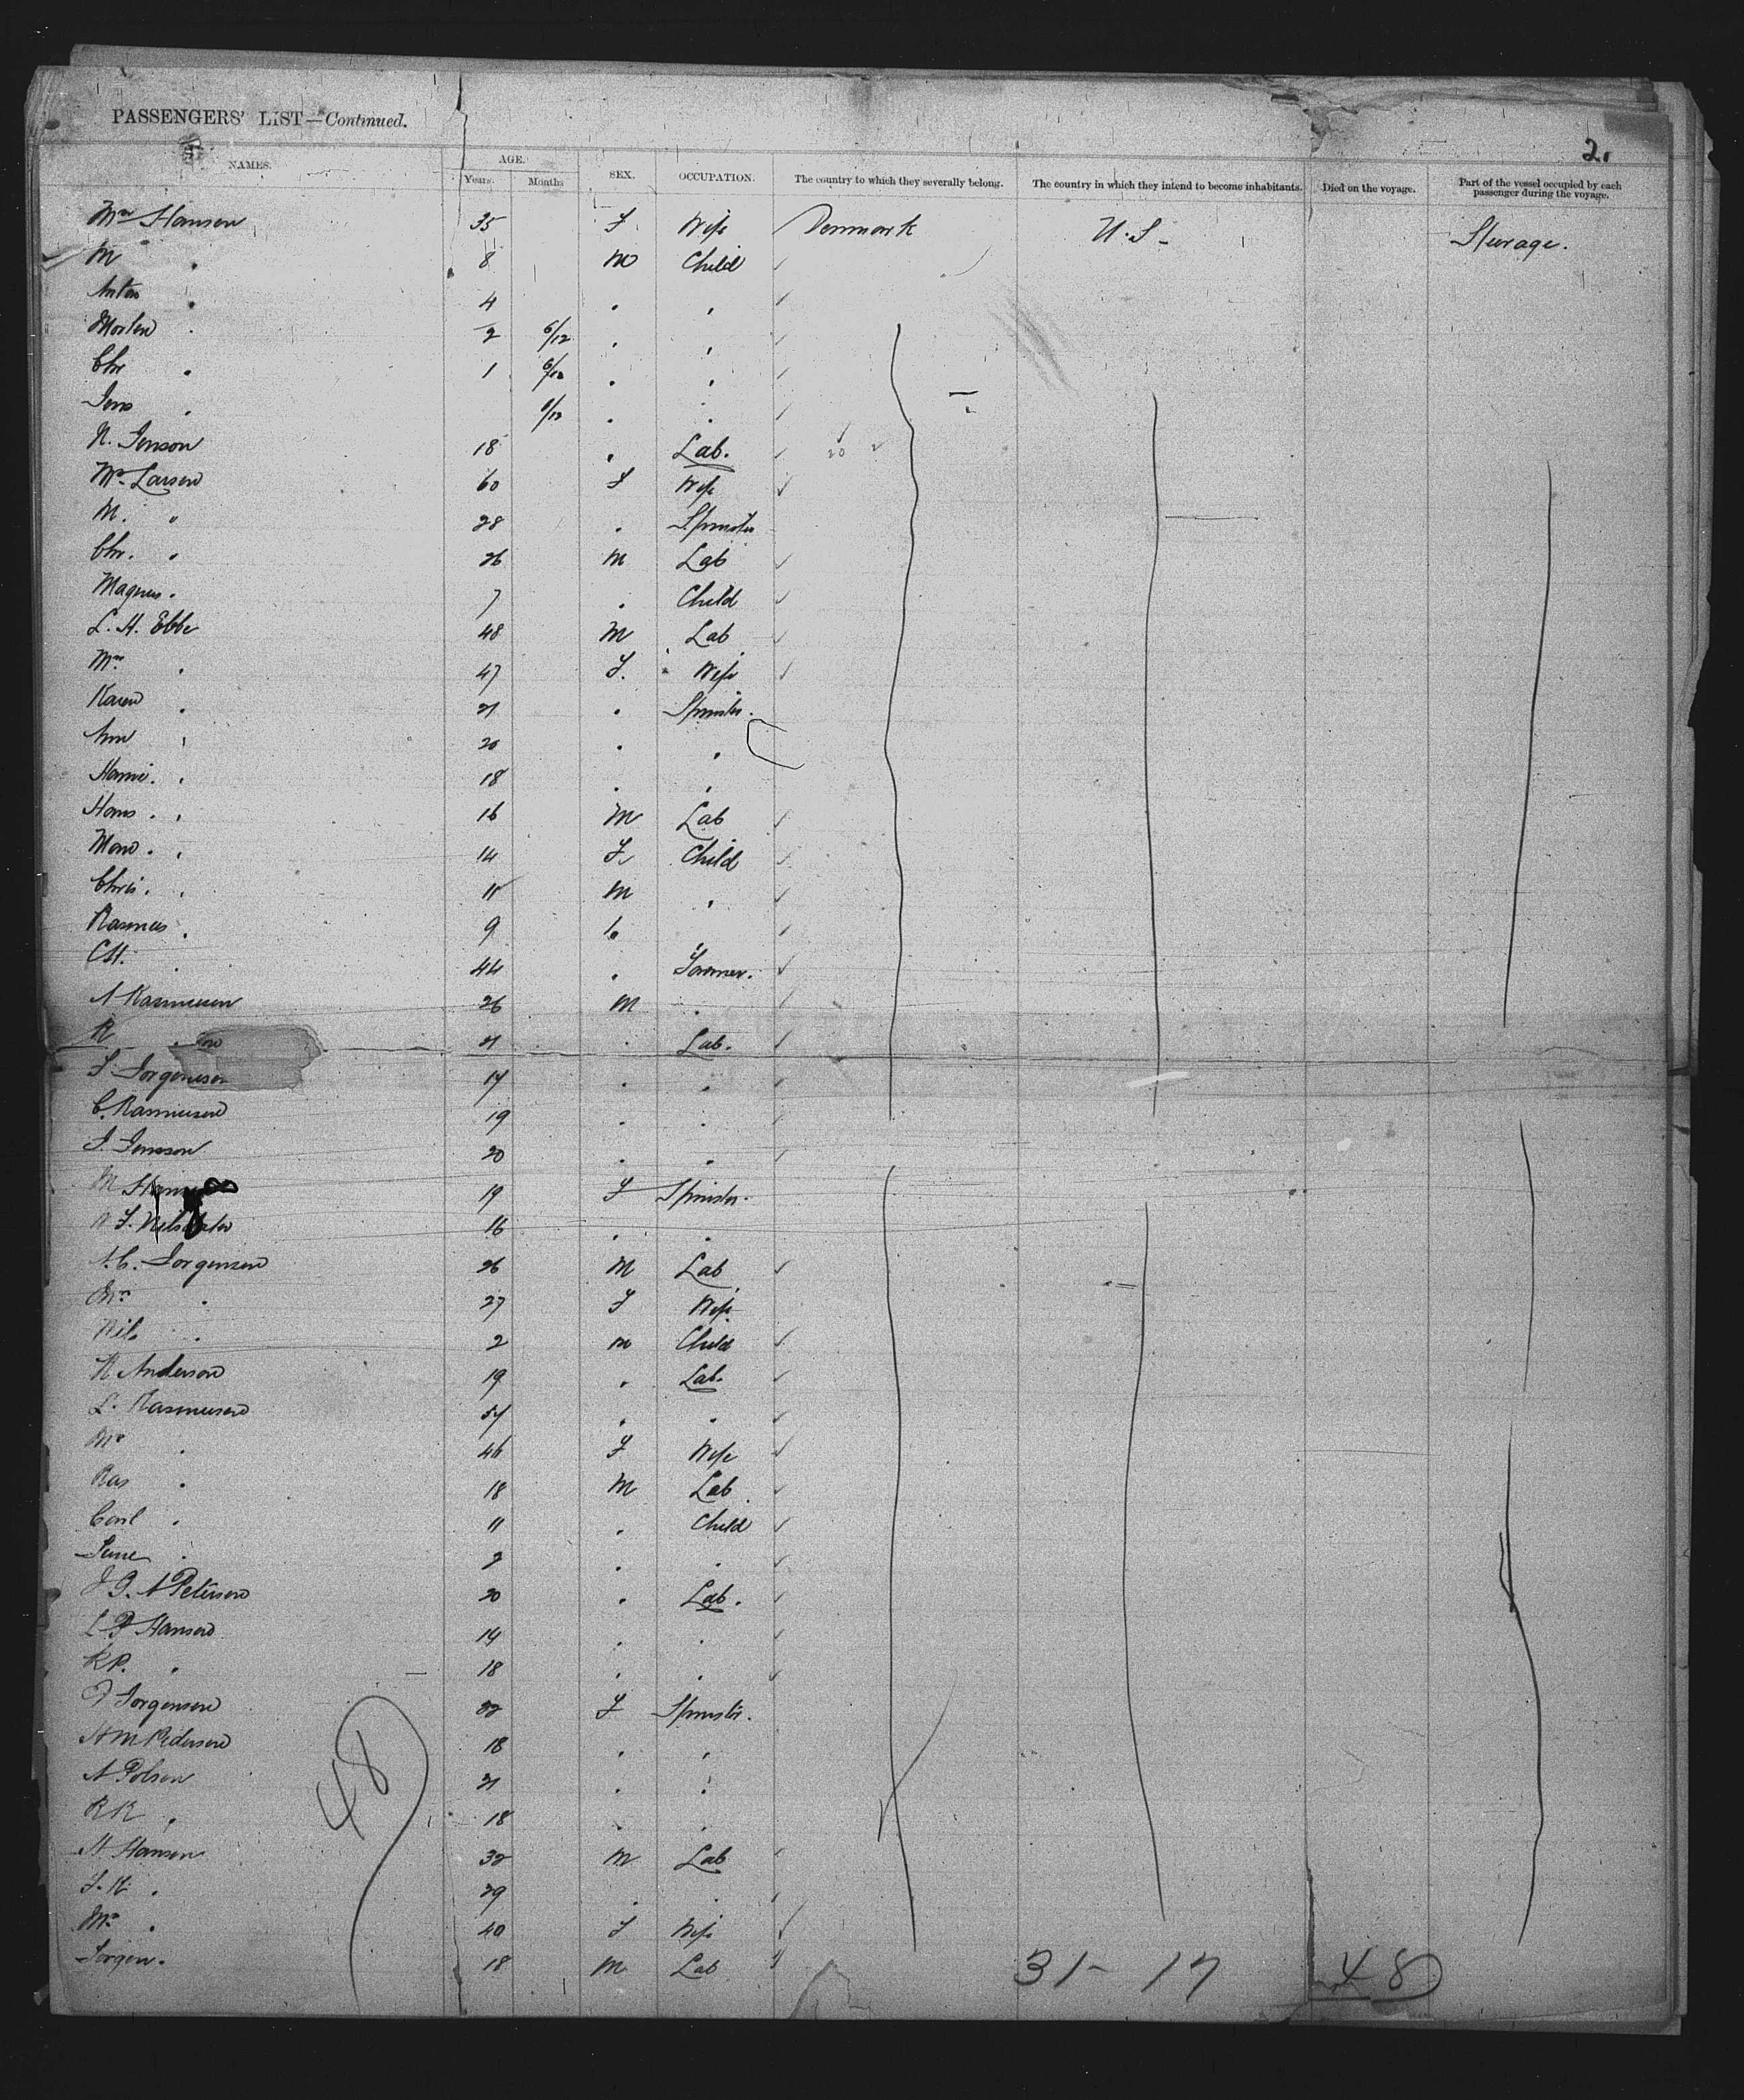 PASSENGERS' LIST—Continued.
2.
NAMES. AGE. Years. Months SEX. OCCUPATION. The country to which they severally belong. The country in which they intend to become inhabitants. Died on the voyage. Part of the vessel occupied by each passenger during the voyage.
Mrs Hansen 35 F Wife Denmark U.S- Sterage.
M " 8 M Child
Anton " 4 " "
Morten " 2 6/12 " "
Chr " 1 6/12 " "
Jens " /12 " "
N. Jenson 18 " Lab. 20
Mrs Larsen 60 F Wife
M. " 28 " Spinster
Chr. " 26 M Lab
Magnus " 7 " Child
L. H. Ebbe 48 M Lab
Mrs " 47 F. Wife
Karen " 21 " Spinster.
Ann " 20 " "
Hanne. " 18 " "
Hans. " 16 M Lab
" 14 F Child
Chris. " 11 M "
Rasmus " 9 "
" 44 " Farmer.
A Rasmussen 26 M "
R " 21 " Lab.
Jorgensen " "
C. Rasmussen 19 " "
J. Jensson 20 " "
M 19 F Spinster.
16 " "
A.C. Jorgensen 26 M Lab
Mrs " 27 F Wife
Nils " 2 M Child
N Anderson 19 " Lab.
L. Rasmussen " "
Mrs " 46 F Wife
Ras " 18 M Lab
Carl " 11 " Child
" " "
J P. A Petersen 20 " Lab.
L P Hansen 19 " "
K P. " 18 " "
Jorgensen 22 F Spinster.
H M Pedersen 18 " "
A Polsen 21 " "
R K " 18 " "
H. Hansen 32 M Lab
J. K " 29 " "
Mrs " 40 F Wife
Jorgen " 18 M Lab
48
31- 17 48